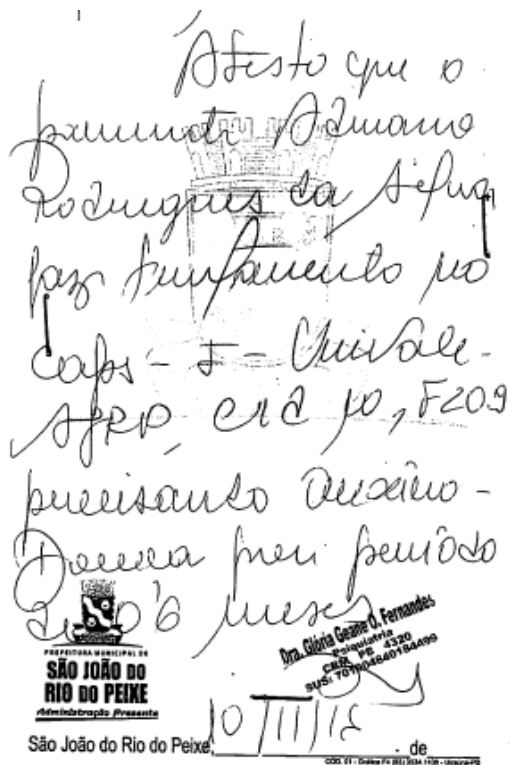 Atesto que o
paciente Adriano
Rodrigues da Silva
faz tratamento no
Caps - I - Univale -
SJRP, CID 10, F209
precisando auxílio -
Doença por período
de 06 meses
PREFEITURA MUNICIPAL DE
SÃO JOÃO DO
RIO DO PEIXE
Administração Presente
Dra. Glória Geane O. Fernandes
Psiquiatria
CRM PB 4320
São João do Rio do Peixe, 10/11/15 de